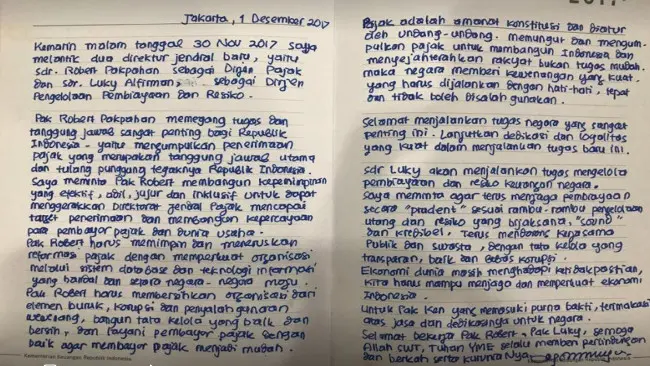 Jakarta, 1 Desember 2017
Kemarin malam tanggal 30 Nov 2017 saya
melantik dua direktur jendral baru, yaitu
sdr. Robert Pakpahan sebagai Dirjen Pajak
dan sdr. Luky Alfirman, sebagai Dirjen
Pengelolaan Pembiayaan dan Resiko.
Pak Robert Pakpahan memegang tugas dan
tanggung jawab sangat penting bagi Republik
Indonesia - yaitu mengumpulkan penerimaan
pajak yang merupakan tanggung jawab utama
dan tulang punggung tegaknya Republik Indonesia.
Saya meminta Pak Robert membangun kepemimpinan
yang efektif, adil, jujur dan inklusif untuk dapat
menggerakkan Direktorat Jendral Pajak mencapai
target penerimaan dan membangun kepercayaan
para pembayar pajak dan dunia usaha.
Pak Robert harus memimpin dan meneruskan
reformasi pajak dengan memperkuat organisasi
melalui sistem database dan teknologi informasi
yang handal dan setara negara-negara maju.
Pak Robert harus membersihkan organisasi dari
elemen buruk, korupsi dan penyalahgunaan
wewenang, bangun tata kelola yang baik dan
bersih, dan layani pembayar pajak dengan
baik agar membayar pajak menjadi mudah.
Kementerian Keuangan Republik Indonesia
2017
Pajak adalah amanat konstitusi dan diatur
oleh undang-undang. memungut dan mengum-
pulkan pajak untuk membangun Indonesia dan
menyejahterahkan rakyat bukan tugas mudah.
maka negara memberi kewenangan yang kuat.
yang harus dijalankan dengan hati-hati, tepat
dan tidak boleh disalah gunakan.
Selamat menjalankan tugas negara yang sangat
penting ini. Lanjutkan dedikasi dan loyalitas
yang kuat dalam menjalankan tugas baru ini.
sdr Luky akan menjalankan tugas mengelola
pembiayaan dan resiko keuangan negara.
Saya meminta agar terus menjaga pembiayaan
secara "prudent" sesuai rambu-rambu pengelolaan
utang dan resiko yang bijaksana,
dan kredibel. Terus mendorong kerjasama
Publik dan swasta, dengan tata kelola yang
transparan, baik dan bebas korupsi.
Ekonomi dunia masih menghadapi ketidakpastian,
kita harus mampu menjaga dan memperkuat ekonomi
Indonesia.
Untuk Pak Ken yang memasuki purna bakti, terimakasih
atas jasa dan dedikasinya untuk negara.
Selamat bekerja Pak Robert, Pak Luky, semoga
Allah SWT, Tuhan YME selalu memberi perlindungan
dan berkah serta karuniaNya